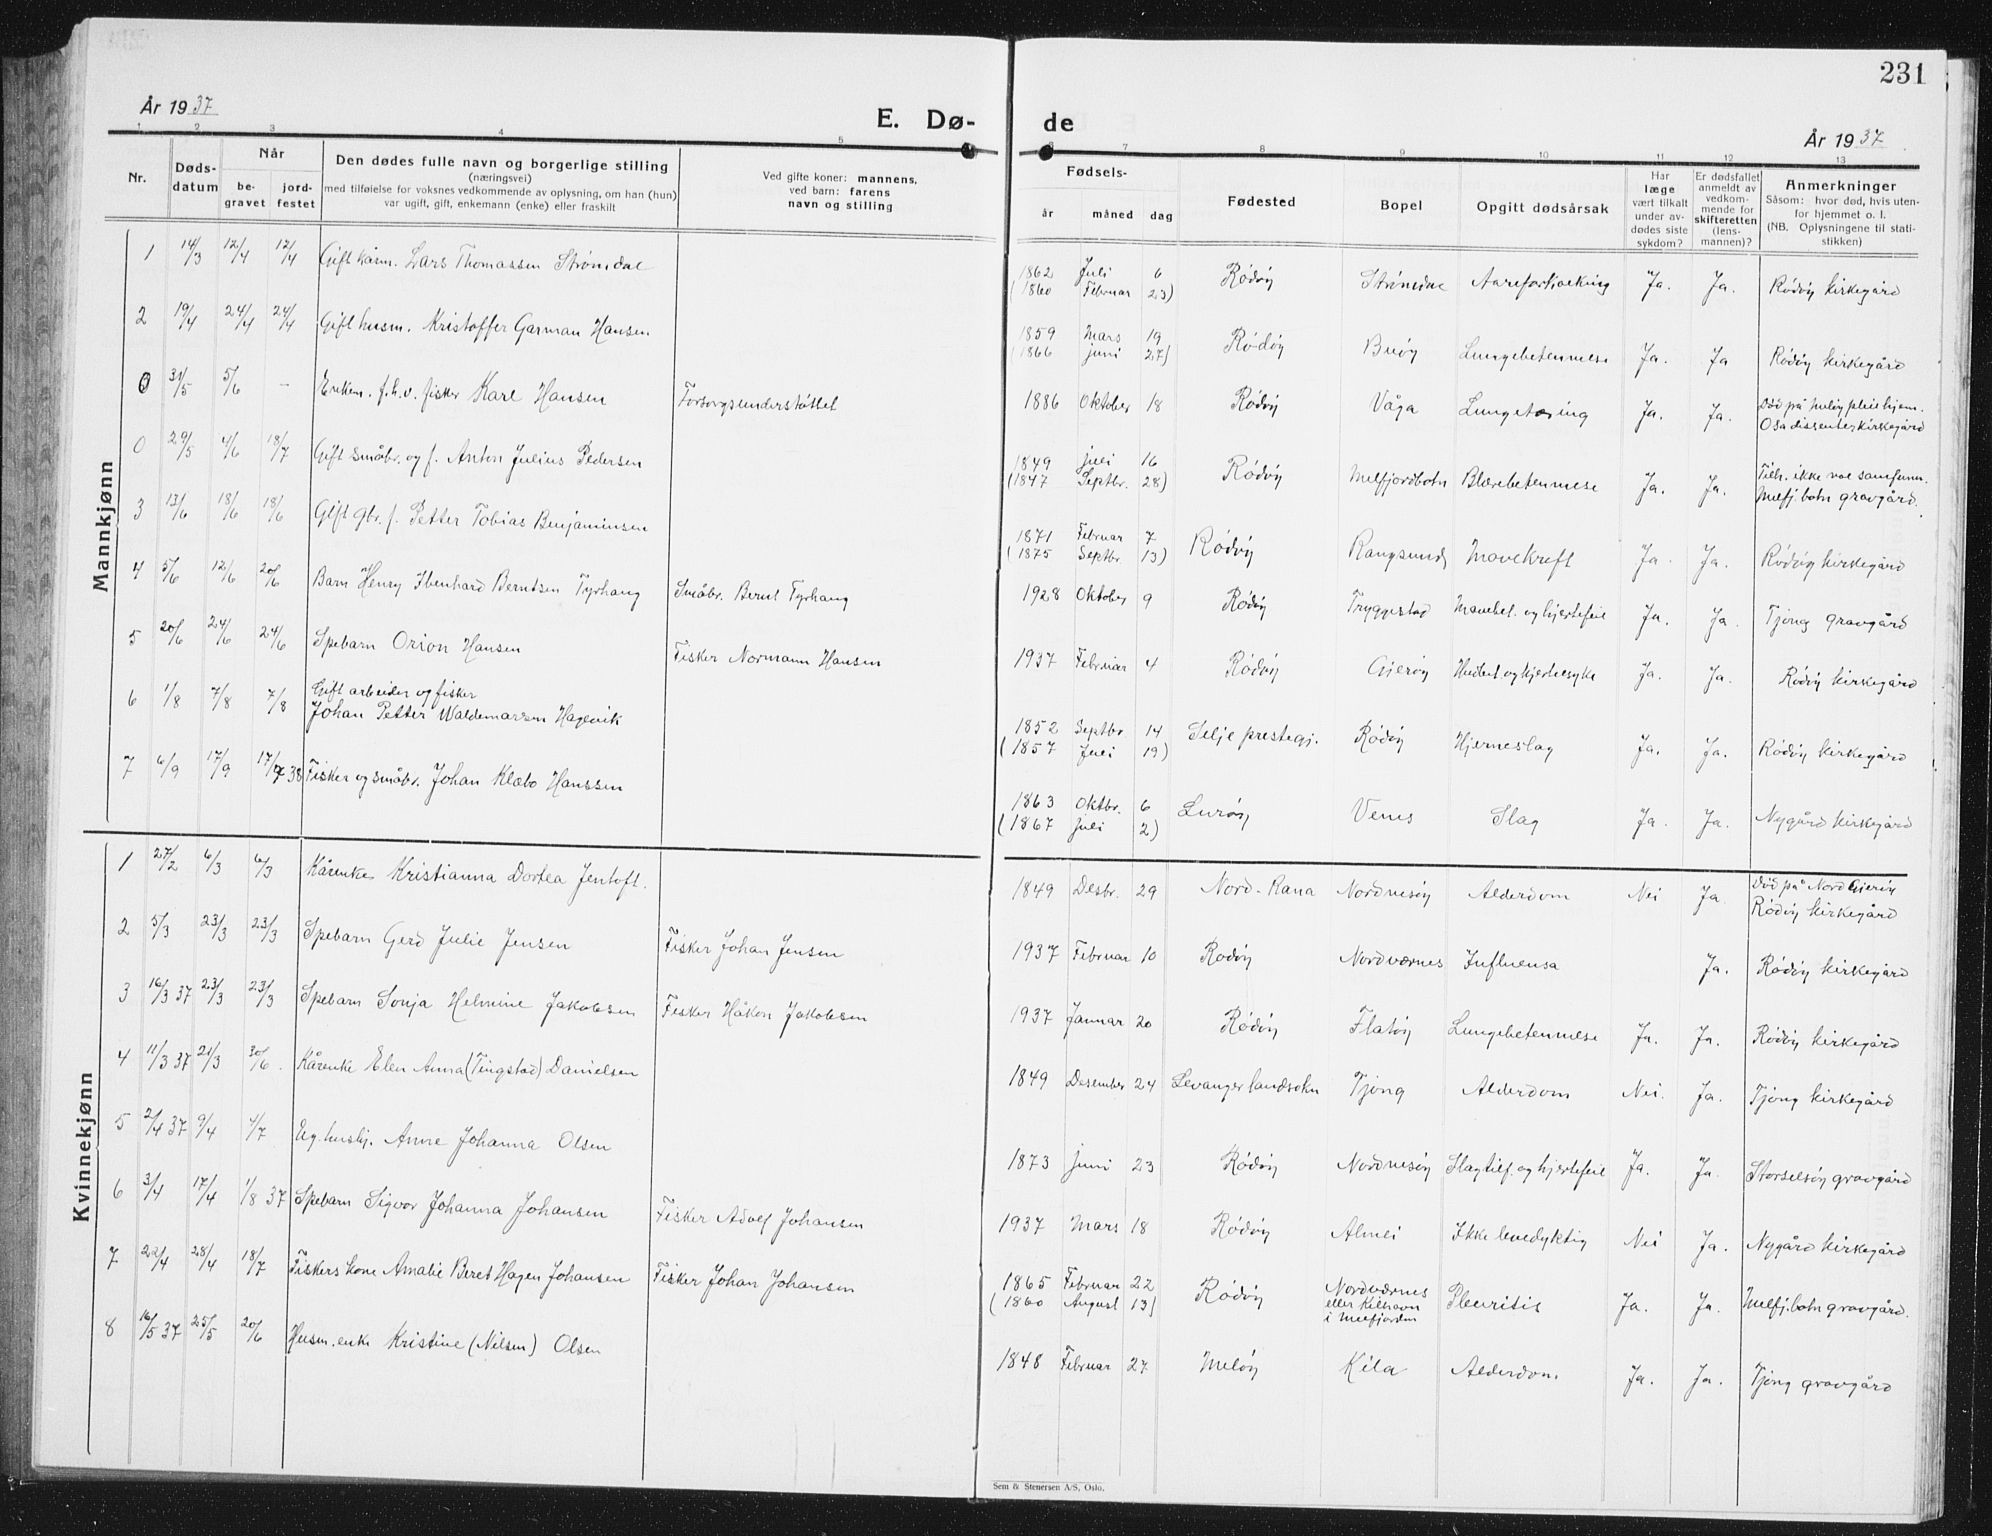 231
År 1937
E. Dø-
de
År 1937
1 2 3 4 5
6 7 8 9 10 11 12 13
Nr.
Døds-
datum
Når
be-
gravet
jord-
festet
Den dødes fulle navn og borgerlige stilling
(næringsvei)
med tilføielse for voksnes vedkommende av oplysning, om han (hun)
var ugift, gift, enkemann (enke) eller fraskilt
Ved gifte koner: mannens,
ved barn: farens
navn og stilling
Fødsels-
år måned dag
Fødested
Bopel
Opgitt dødsårsak
Har
læge
vært tilkalt
under av-
dødes siste
sykdom?
Er dødsfallet
anmeldt av
vedkom-
mende for
skifteretten
(lens-
mannen)?
Anmerkninger
Såsom: hvor død, hvis uten-
for hjemmet o. l.
(NB. Oplysningene til stati-
stikken)
Mannkjønn
1 14/3 12/4 12/4 Gift kårm. Lars Thomassen Strømdal
1862 Juli 6 Rødøy Strømdal Aareforkalkning Ja. Ja. Rødøy kirkegård
(1860 Februar 23)
2 19/4 24/4 24/4 Gift husm. Kristoffer Garman Hansen
1859 Mars 19 Rødøy Buøy Lungebetennelse Ja. Ja Rødøy kirkegård
(1866 juni 27)
0 31/5 5/6 - Enkem. f.h.v. fisker Karl Hansen Forsorgsunderstøttet
1886 Oktober 18 Rødøy Våga Lungetæring Ja. Ja. Død på Meløy pleiehjem.
Osa dissenterkirkegård
0 29/5 4/6 18/7 Gift småbr. og f. Anton Julius Pedersen
1849 juli 16 Rødøy Melfjordbotn Blærebetennelse Ja. Ja. Tilh. ikke vae samfunn.
(1847 Septbr. 28) Melfj.botn gravgård.
3 13/6 18/6 18/6 Gift gbr. f. Petter Tobias Benjaminsen
1871 Februar 7 Rødøy Rangsund Mavekreft Ja. Ja. Rødøy kirkegård
(1875 Septbr. 13)
4 5/6 12/6 20/6 Barn Henry Ibenhard Berntsen Tyrhaug Småbr. Bernt Tyrhaug
1928 Oktober 9 Rødøy Tryggestad Mavebet. og hjertefeil Ja. Ja. Tjong gravgård
5 20/6 24/6 24/6 Spebarn Orion Hansen Fisker Normann Hansen
1937 Februar 4 Rødøy Gjerøy og hjertesyke Ja. Ja. Rødøy kirkegård
6 1/8 7/8 7/8 Gift arbeider og fisker
Johan Petter Waldemarsen Hagevik
1852 Septbr 14 Selje prestegj. Rødøy Hjerneslag Ja. Ja. Rødøy kirkegård
(1857 Juli 19)
7 6/9 17/9 17/7 38 Fisker og småbr. Johan Klæbo Hanssen
1863 Oktbr. 6 Lurøy Venes Slag Ja. Ja. Nygård kirkegård
(1867 juli 2)
Kvinnekjønn
1 27/2 6/3 6/3 Kårenke Kristianna Dortea Jentoft.
1849 Desbr. 29 Nord-Rana Nordnesøy Alderdom Nei Ja. Død på Nord Gjerøy
Rødøy kirkegård
2 5/3 23/3 23/3 Spebarn Gerd Julie Jensen Fisker Johan Jensen
1937 Februar 10 Rødøy Nordværnes Influensa Ja. Rødøy kirkegård
3 16/3 37 23/3 23/3 Spebarn Sonja Helmine Jakobsen Fisker Håkon Jakobsen
1937 Januar 20 Rødøy Flatøy Lungebetennelse Ja. Ja. Rødøy kirkegård
4 11/3 37 21/3 30/6. Kårenke Elen Anna (Tingstad) Danielsen
1849 Desember 24 Levanger landsokn Tjong Alderdom Nei. Ja. Tjong kirkegård
5 2/4 37 9/4 4/7 Ug. hushj. Anne Johanna Olsen
1873 juni 23 Rødøy Nordnesøy Slagtilf. og hjertefeil Ja. Ja. Storselsøy gravgård
6 3/4 17/4 1/8 37 Spebarn Sigvor Johanna Johansen Fisker Adolf Johansen
1937 Mars 18 Rødøy Almei Ikke levedyktig Nei Ja. Nygård kirkegård
7 22/4 28/4 18/7 Fiskers kone Amalie Beret Hagen Johansen Fisker Johan Johansen
1865 Februar 22 Rødøy Nordværnes Pleuritis Ja. Ja. Melfj.botn gravgård.
(1860 August 13) eller Kilhavn
i Melfjorden
8 16/5 37 25/5 20/6 Husm. enke Kristine (Nilsen) Olsen
1848 Februar 27 Meløy Kila Alderdom. Ja. Ja. Tjong gravgård
Sem & Stenersen A/S, Oslo.